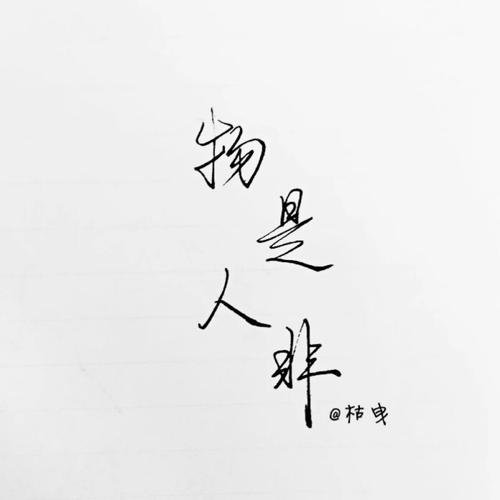 物
是
人
非
@枯曳